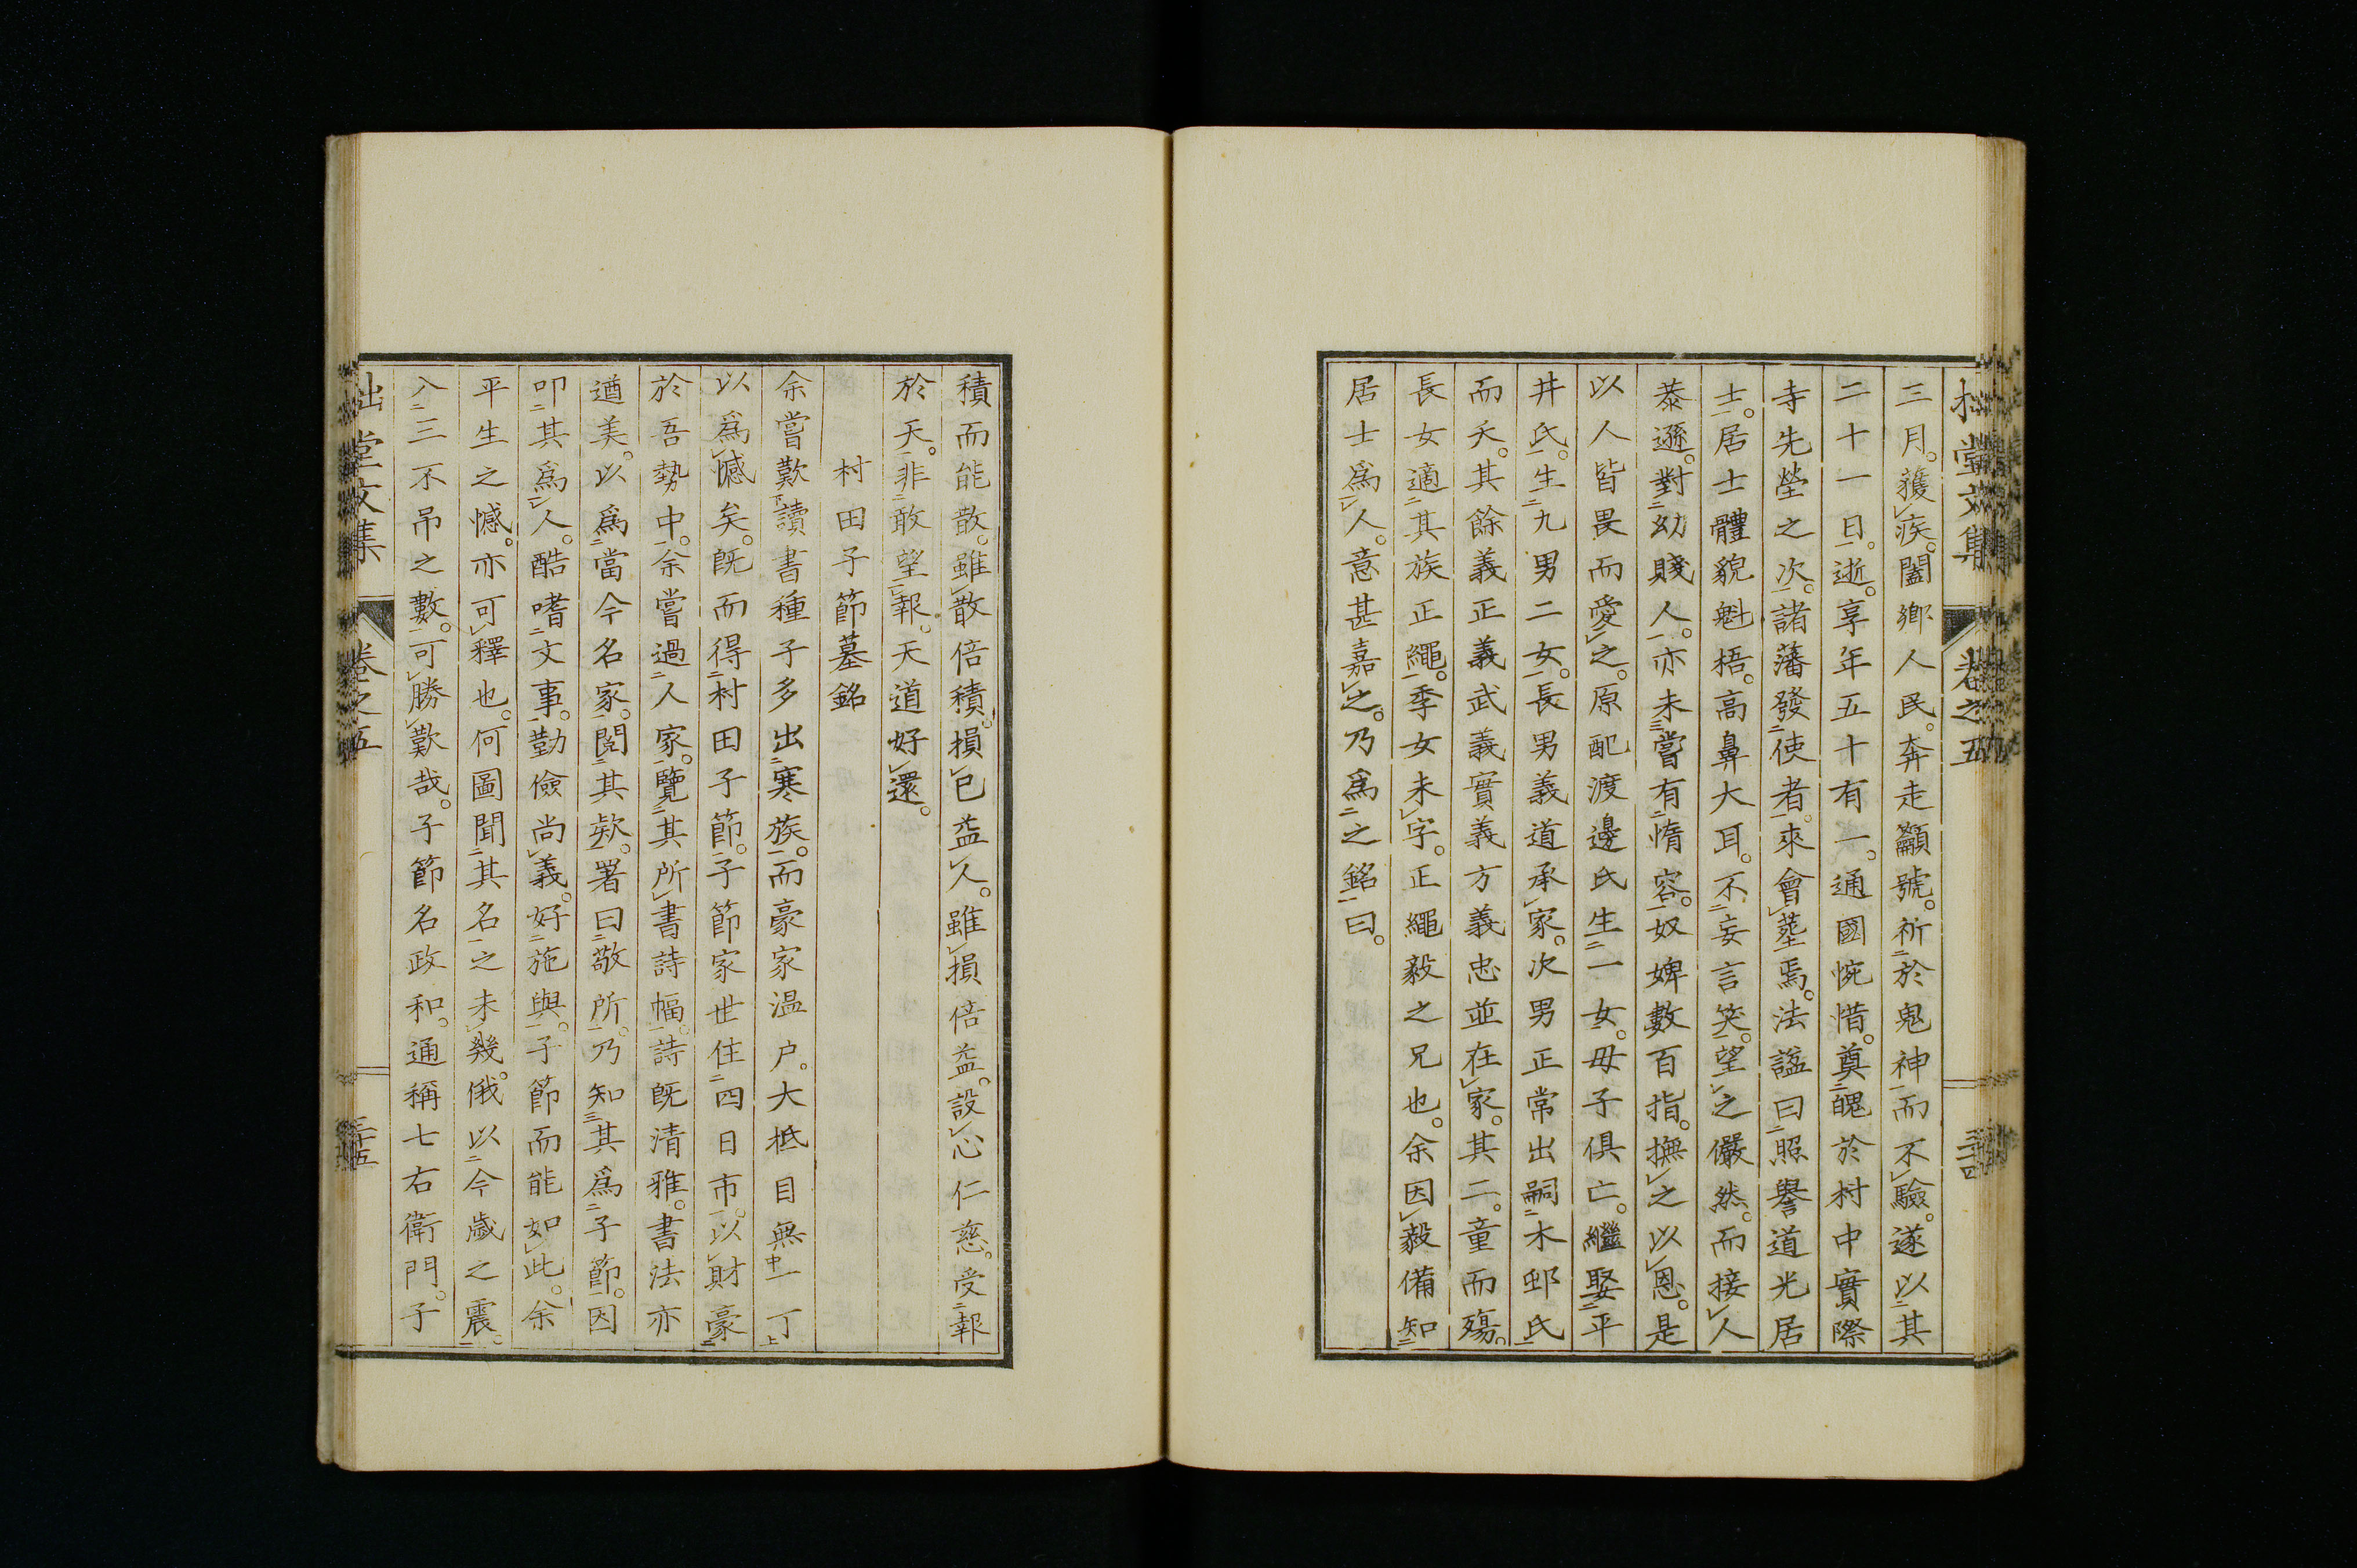 拙堂文集 卷之五 三十四
三月。獲疾。闔鄉人民。奔走籲號。祈於鬼神而不驗。遂以其
二十一日。逝。享年五十有一。通國惋惜。奠醜於村中實際
寺先塋之次。諸藩發使者。來會葬焉。法諡曰照譽道光居
士。居士體貌魁梧。高鼻大耳。不妄言笑。望之儼然。而接人
恭遜。對幼賤人。亦未嘗有惰容。奴婢數百指。撫之以恩。是
以人皆畏而愛之。原配渡邊氏生一女。母子俱亡。繼娶平
井氏。生九男二女。長男義道承家。次男正常出嗣木邨氏
而夭。其餘義正義武義實義方義忠並在家。其二。童而殤。
長女適其族正繩。季女未字。正繩毅之兄也。余因毅備知
居士爲人。意甚嘉之。乃爲之銘曰。
積而能散。雖散倍積。損已益人。雖損倍益。設心仁慈。受報
於天。非敢望報。天道好還。
村田子節墓銘
余嘗歎讀書種子多出寒族。而豪家溫户。大抵目無一丁
以爲憾矣。既而得村田子節。子節家世住四日市。以財豪
於吾勢中。余嘗過人家。覽其所書詩幅。詩既清雅。書法亦
遒美。以爲當今名家。閱其欵。署曰敬所。乃知其爲子節。因
叩其爲人。酷嗜文事。勤儉尚義。好施與。子節而能如此。余
平生之憾。亦可釋也。何圖聞其名之未幾。俄以今歲之震。
入三不吊之數。可勝歎哉。子節名政和。通稱七右衛門。子
拙堂文集 卷之五 三十五